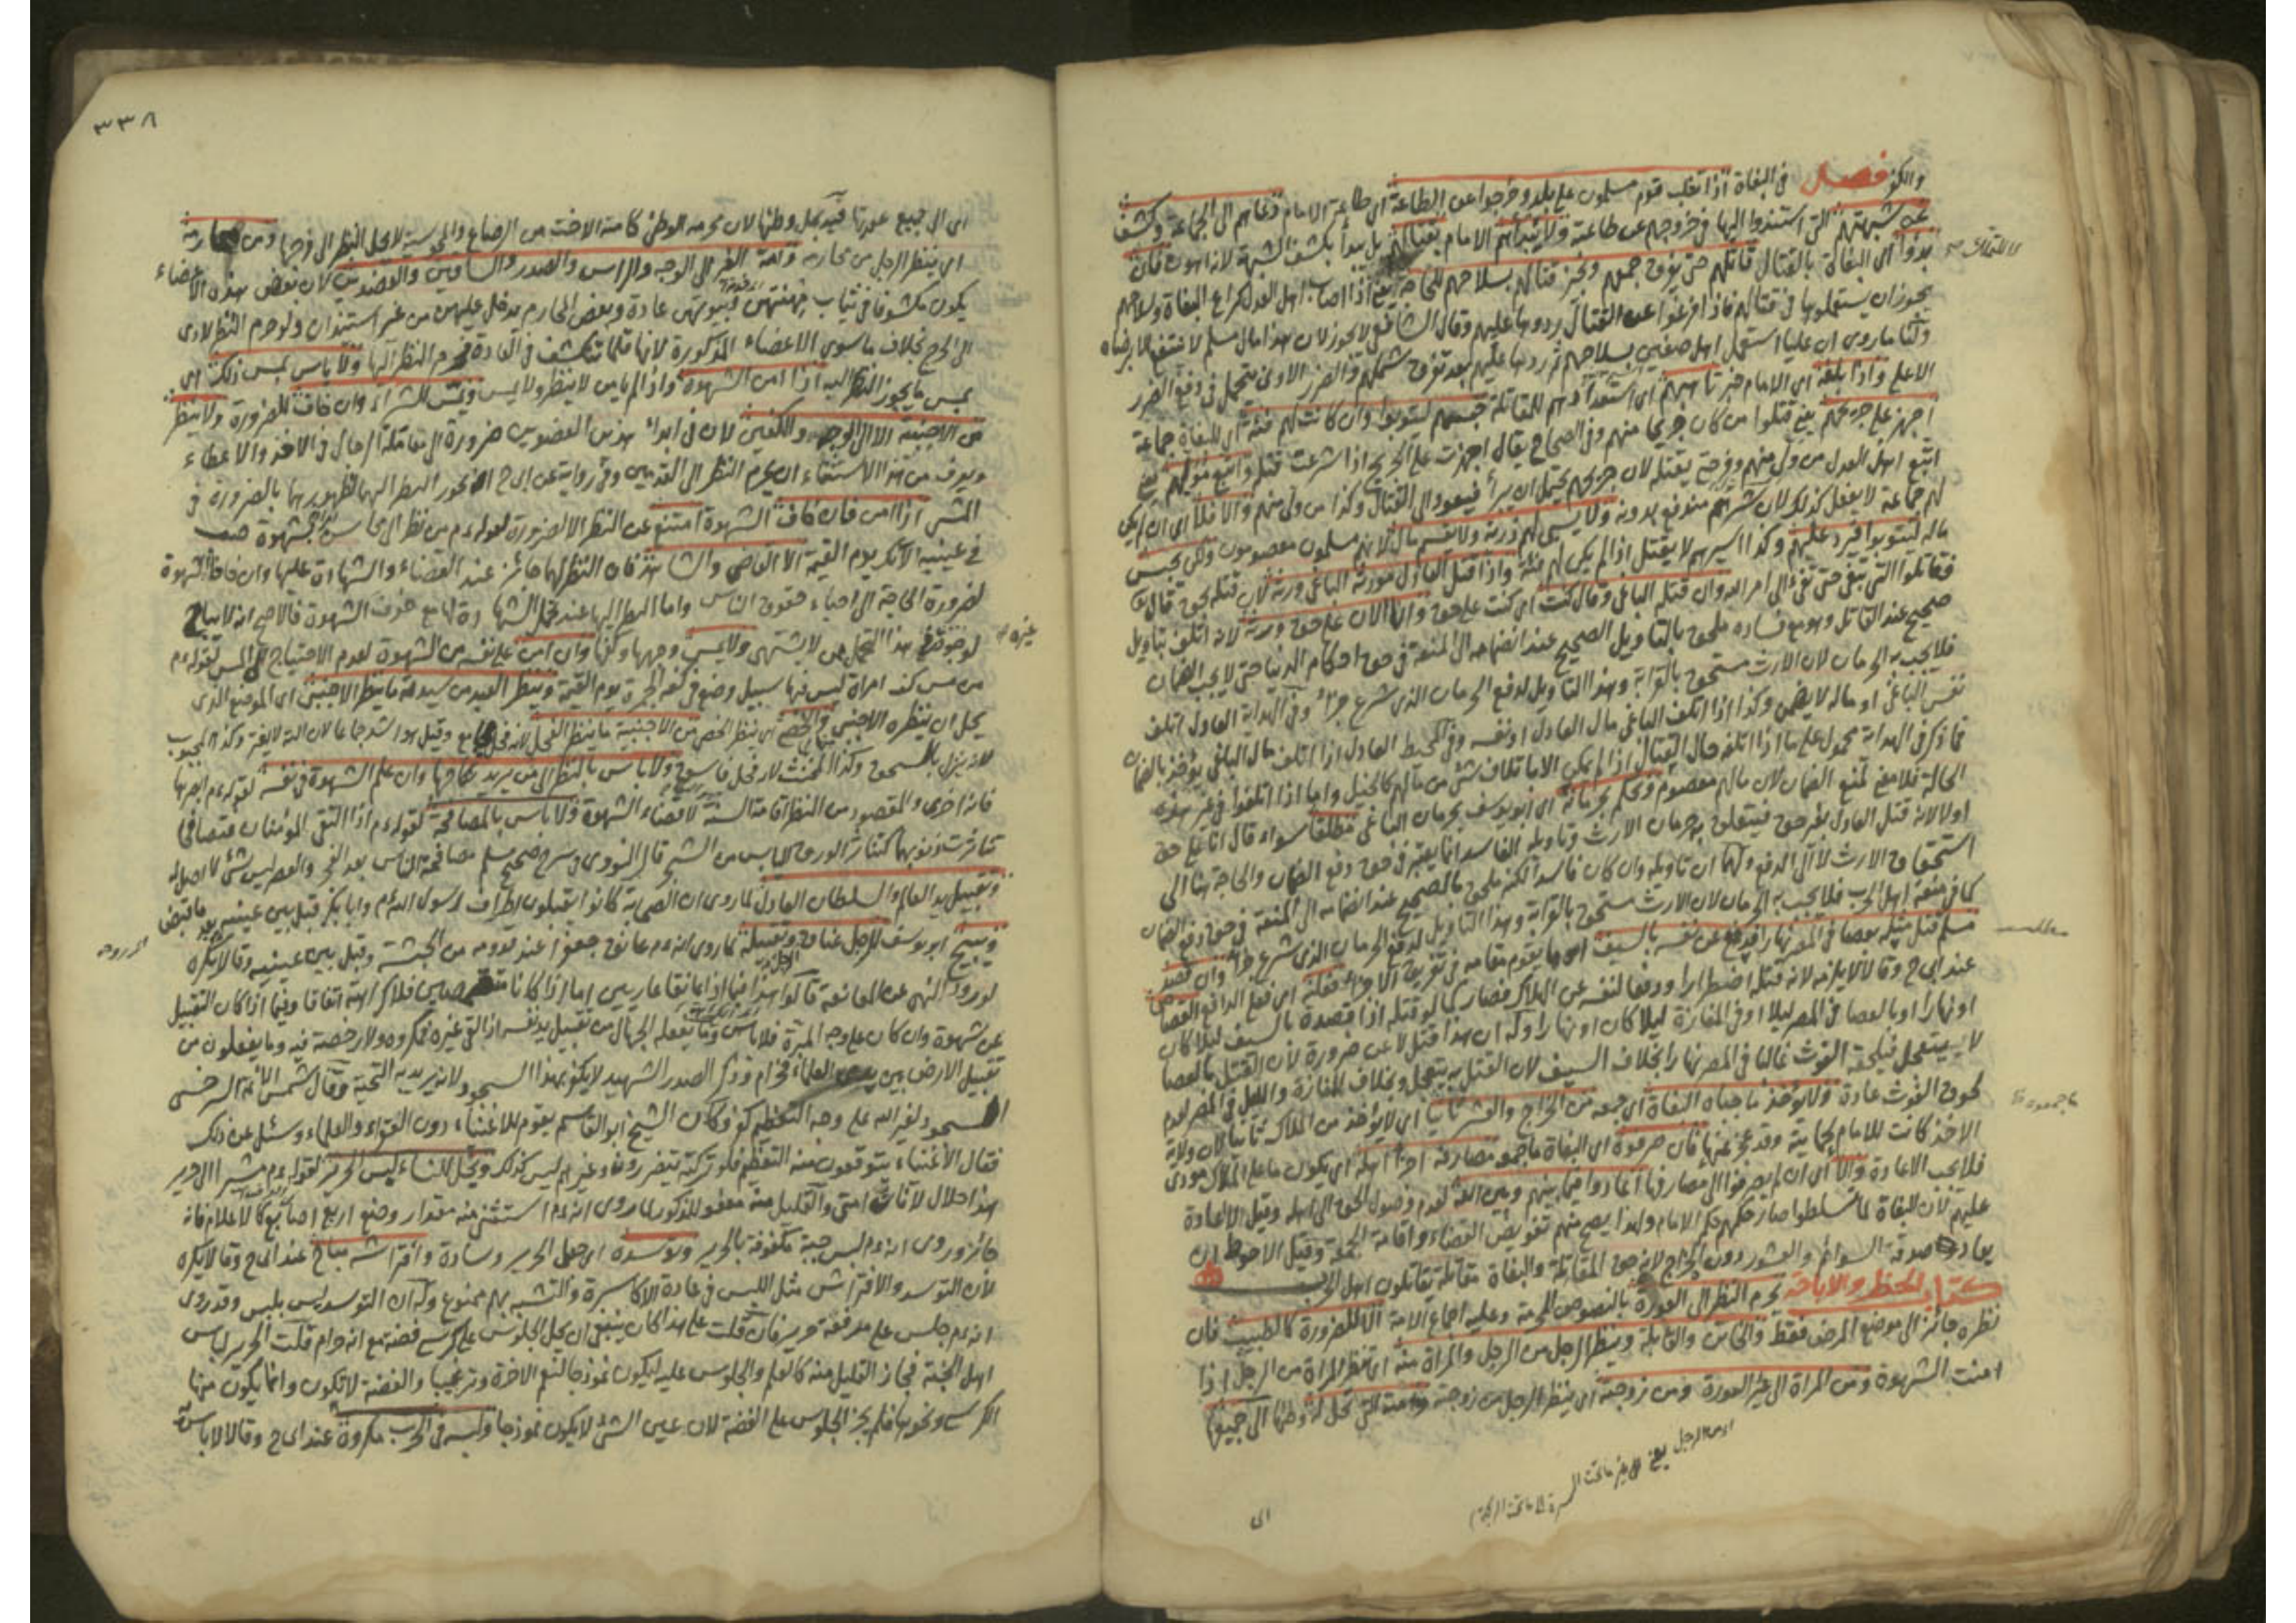 والكفر فصل في البغاة اذا تغلب قوم مسلمون على بلد وخرجوا عن الطاعة اي طاعة الامام دعاهم الى الجماعة وكشف
عن شبهتهم التي استندوا اليها في خروجهم عن طاعته ولا يبدأهم الامام بقتالهم بل يبدأ بكشف الشبهة لانه اهون فان
بدؤا اي البغاة بالقتال قاتلهم حتى يفرق جمعهم ويجوز قتالهم بسلاحهم للحاجة يعني اذا اصاب اهل العدل كراع البغاة وسلاحهم
يجوز ان يستعملوها في قتالهم فاذا فرغوا عن القتال ردوها عليهم وقال الشافعي لا يجوز لان هذا مال مسلم لا ينتفع الا برضاه
ولنا ما روي ان عليا استعمل اهل صفين بسلاحهم ثم ردها عليهم بعد تفرق شملهم والضرر الادنى يتحمل في دفع الضرر
الاعلى واذا بلغه اي الامام خبر تأهبهم اي استعدادهم للمقاتلة حبسهم ليتوبوا وان كانت لهم فئة اي للبغاة جماعة
اجهز على جريحهم يعني قتلوا من كان جريحا منهم وفي الصحاح يقال اجهزت على الجريح اذا اسرعت قتله واتبع موليهم يعني
اتبع اهل العدل من ولى منهم وفر حتى يقتله لان جريحهم يحتمل ان يبرأ فيعود الى القتال وكذا من ولى منهم والا فلا اي ان لم يكن
لهم جماعة لا يفعل كذلك لان شرهم مندفع بدونه ولا يسبى لهم ذرية ولا يقسم مال لانهم مسلمون معصومون ولكن يحبس
ماله ليتوبوا فيرد عليهم وكذا اسيرهم لا يقتل اذا لم يكن لهم فئة واذا قتل العادل مورثه الباغي ورثه لان قتله بحق قال تع
فقاتلوا التي تبغي حتى تفيء الى امر الله وان قتله الباغي وقال كنت اي كنت على حق وانا الان على حق ورثه لانه اتلف بتأويل
صحيح عند القاتل وهو مع فساده ملحق بالتأويل الصحيح عند انضمامه الى المنعة في حق احكام الدنيا حتى لا يجب الضمان
فلا يجب به الحرمان لان الارث مستحق بالقرابة وهذا التأويل لدفع الحرمان الذي شرع جزاء وفي الهداية العادل اذا اتلف
نفس الباغي او ماله لا يضمن وكذا اذا اتلف الباغي مال العادل او نفسه وفي المحيط العادل اذا اتلف مال الباغي يؤخذ بالضمان
فما ذكر في الهداية محمول على ما اذا اتلفه حال القتال اذا لم يمكن الا باتلاف شئ من مالهم كالخيل واما اذا اتلفوا في غير هذه
الحالة فلا معنى لمنع الضمان لان مالهم معصوم ويحكم بحرمانه اي ابو يوسف بحرمان الباغي مطلقا سواء قال انا على حق
اولا لانه قتل العادل بغير حق فيتعلق به حرمان الارث وتأويله الفاسد انما يعتبر في حق دفع الضمان والحاجة هنا الى
استحقاق الارث لا الى الدفع ولهما ان تأويله وان كان فاسدا لكنه ملحق بالصحيح عند انضمامه الى المنعة في حق دفع الضمان
كما في منعة اهل الحرب فلا يجب به الحرمان لان الارث مستحق بالقرابة وهذا التأويل لدفع الحرمان الذي شرع جزاء وان قصد
مسلم قتل مثله بعصا في المصر نهارا فدفع عن نفسه بالسيف او ما يقوم مقامه في تفريق الاجزاء فقتله اي قتل الدافع القصاص
عند ابي ح وقالا لا يلزمه لانه قتله اضطرارا ودفعا لنفسه عن الهلاك فصار كما لو قتله اذا قصده بالسيف ليلا كان
او نهارا او بالعصا في المصر ليلا او في المفازة ليلا كان او نهارا وله ان هذا قتل لا عن ضرورة لان القتل بالعصا
لا يستعجل فيلحقه الغوث غالبا في المصر نهارا بخلاف السيف لان القتل به يتعجل وبخلاف المفازة والليل في المصر لعدم
لحوق الغوث عادة ولا يؤخذ ما جباه البغاة اي جمعه من الخراج والعشر ثانيا اي لا يؤخذ من الملاك ثانيا لان ولاية
الاخذ كانت للامام بحمايته وقد عجز عنها فان صرفوه اي البغاة ما جمعوه مصارفه اجزأ اهله اي يكون ما على الملاك مودى
فلا يجب الاعادة والا اي ان لم يصرفوا الى مصارفها اعادوا فيما بينهم وبين الله لعدم وصول الحق الى اهله وقيل لا اعادة
عليهم لان البغاة لما تسلطوا صار حكمهم حكم الامام ولهذا يصح منهم تفويض القضاء واقامة الجمعة وقيل الاحوط ان
يعادوا صدقة السوائم والعشور دون الخراج لانه حق المقاتلة والبغاة مقاتلة يقاتلون اهل الحرب
كتاب الحظر والاباحة يحرم النظر الى العورة بالنصوص المحرمة وعليه اجماع الامة الا للضرورة كالطبيب فان
نظره جائز الى موضع المرض فقط والخاتن والقابلة وينظر الرجل من الرجل والمرأة منه اي تنظر المرأة من الرجل اذا
امنت الشهوة ومن المرأة الى غير العورة ومن زوجته اي ينظر الرجل من زوجته وامته التي تحل له وطئها الى جميعها
اي
٣٣٨
اي الى جميع عورتها قيد بحل وطئها لان محرمه الوطئ كامته الاخت من الرضاع والمجوسية لا يحل النظر الى فرجها ومن محارمه
اي ينظر الرجل من محارمه وامة الغير الى الوجه والراس والصدر والساقين والعضدين لان بعض هذه الاعضاء
يكون مكشوفا في ثياب مهنتهن وبيوتهن عادة وبعض المحارم يدخل عليهن من غير استئذان ولو حرم النظر لادى
الى الحرج بخلاف ما سوى الاعضاء المذكورة لانها قلما تنكشف في العادة فيحرم النظر اليها ولا بأس بمس ذلك اي
بمس ما يجوز النظر اليه اذا امن الشهوة واذا لم يأمن لا ينظر ولا يمس ويمس للشراء وان خاف للضرورة ولا ينظر
من الاجنبية الا الى الوجه والكفين لان في ابداء هذين العضوين ضرورة الى معاملة الرجال في الاخذ والاعطاء
ويعرف من هذا الاستثناء ان يحرم النظر الى القدمين وفي رواية عن ابي ح يجوز النظر اليهما لظهورها بالضرورة في
المشي اذا امن فان خاف الشهوة امتنع عن النظر الا لضرورة لقوله ءم من نظر الى محاسن امرأة بشهوة صب
في عينيه الآنك يوم القيمة الا القاضي والشاهد فان النظر لهما جائز عند القضاء والشهادة عليها وان خافا الشهوة
لضرورة الحاجة الى احياء حقوق الناس واما النظر اليها عند تحمل الشهادة لها مع خوف الشهوة فالاصح انه لا يباح
لوجود غيره في هذا التحمل من لا يشتهي ولا يمس وجهها وكفها وان امن على نفسه من الشهوة لعدم الاحتياج الى المس لقوله ءم
من مس كف امرأة ليس منها سبيل وضع في كفه الجمرة يوم القيمة وينظر العبد من سيدته ما ينظر الاجنبي اي الموضع الذي
يحل ان ينظره الاجنبي والخصي اي ينظر الخصي من الاجنبية ما ينظر الفحل لانه فحل يجامع وقيل هو اشد جماعا لان آلته لا يفتر وكذا المجبوب
لانه ينزل بالسحق وكذا المخنث لانه فحل فاسق ولا بأس بالنظر الى من يريد نكاحها وان علم الشهوة في نفسه لقوله ءم ابصرها
فانه احرى والمقصود من النظر اقامة السنة لا قضاء الشهوة ولا بأس بالمصافحة لقوله ءم اذا التقى المؤمنان فتصافحا
تناثرت ذنوبهما كتناثر الورق اليابس من الشجر قال النووي في شرح صحيح مسلم مصافحة الناس بعد الفجر والعصر ليس شئ لا اصل له
وتقبيل يد العالم والسلطان العادل لما روي ان الصحابة كانوا يقبلون اطراف رسول الله ءم وابا بكر قبل بين عينيه بعد ما قبض
ويبيح ابو يوسف للرجل عناقه وتقبيله لما روي انه ءم عانق جعفرا عند قدومه من الحبشة وقبل بين عينيه وقالا يكره
لورود النهي عن المعانقة قالوا هذا فيما اذا تعانقا عاريين اما اذا كانا متقمصين فلا كراهة اتفاقا وفيما اذا كان التقبيل
عن شهوة وان كان على وجه المبرة فلا بأس وما يفعله الجهال من تقبيل يد نفسه اذا لقي غيره فمكروه ولا رخصة فيه وما يفعلون من
تقبيل الارض بين يدي العلماء فحرام وذكر الصدر الشهيد لا يكفر بهذا السجود لانه يريد به التحية وقال شمس الائمة السرخسي
السجود لغير الله على وجه التعظيم كفر وكان الشيخ ابو القاسم يقوم للاغنياء دون الفقراء والعلماء وسئل عن ذلك
فقال الاغنياء يتوقعون منه التعظيم فلو تركته يتضررون وغيرهم ليس كذلك ويحل للنساء لبس الحرير لقوله ءم مشيرا الى حرير
هذا حلال لاناث امتي والقليل منه معفو للذكور لما روي انه ءم استثنى منه مقدار وضع اربع اصابع كالاعلام فانه
جائز وروي انه ءم لبس جبة مكفوفة بالحرير وتوسده اي جعل الحرير وسادة وافتراشه مباح عند ابي ح وقالا يكره
لان التوسد والافتراش مثل اللبس في عادة الاكاسرة والتشبه بهم ممنوع وله ان التوسد ليس بلبس وقد روي
انه ءم جلس على مرفقة حرير فان قلت على هذا كان ينبغي ان يحل الجلوس على كرسي فضة مع انه حرام قلت الحرير لباس
اهل الجنة فجاز القليل منه كالعلم والجلوس عليه ليكون نموذجا لنعم الاخرة وترغيبا والفضة لا تكون وانما يكون منها
الكرسي ونحوها فلم يجز الجلوس على الفضة لان عين الشئ لا يكون نموذجا ولبسه في الحرب مكروه عند ابي ح وقالا لا بأس به